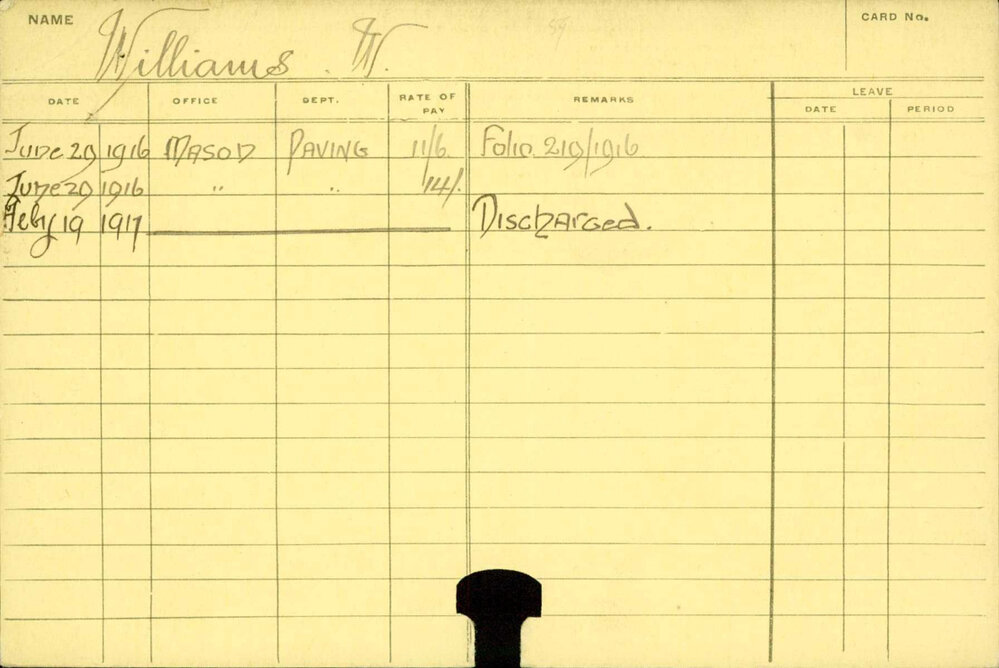 NAME Williams. W. CARD No.
DATE OFFICE DEPT. RATE OF PAY REMARKS LEAVE
DATE PERIOD
June 29 1916 MASON PAVING 11/6 Folio 219/1916
June 29 1916 " " 14/-
Feby 19 1917 Discharged.